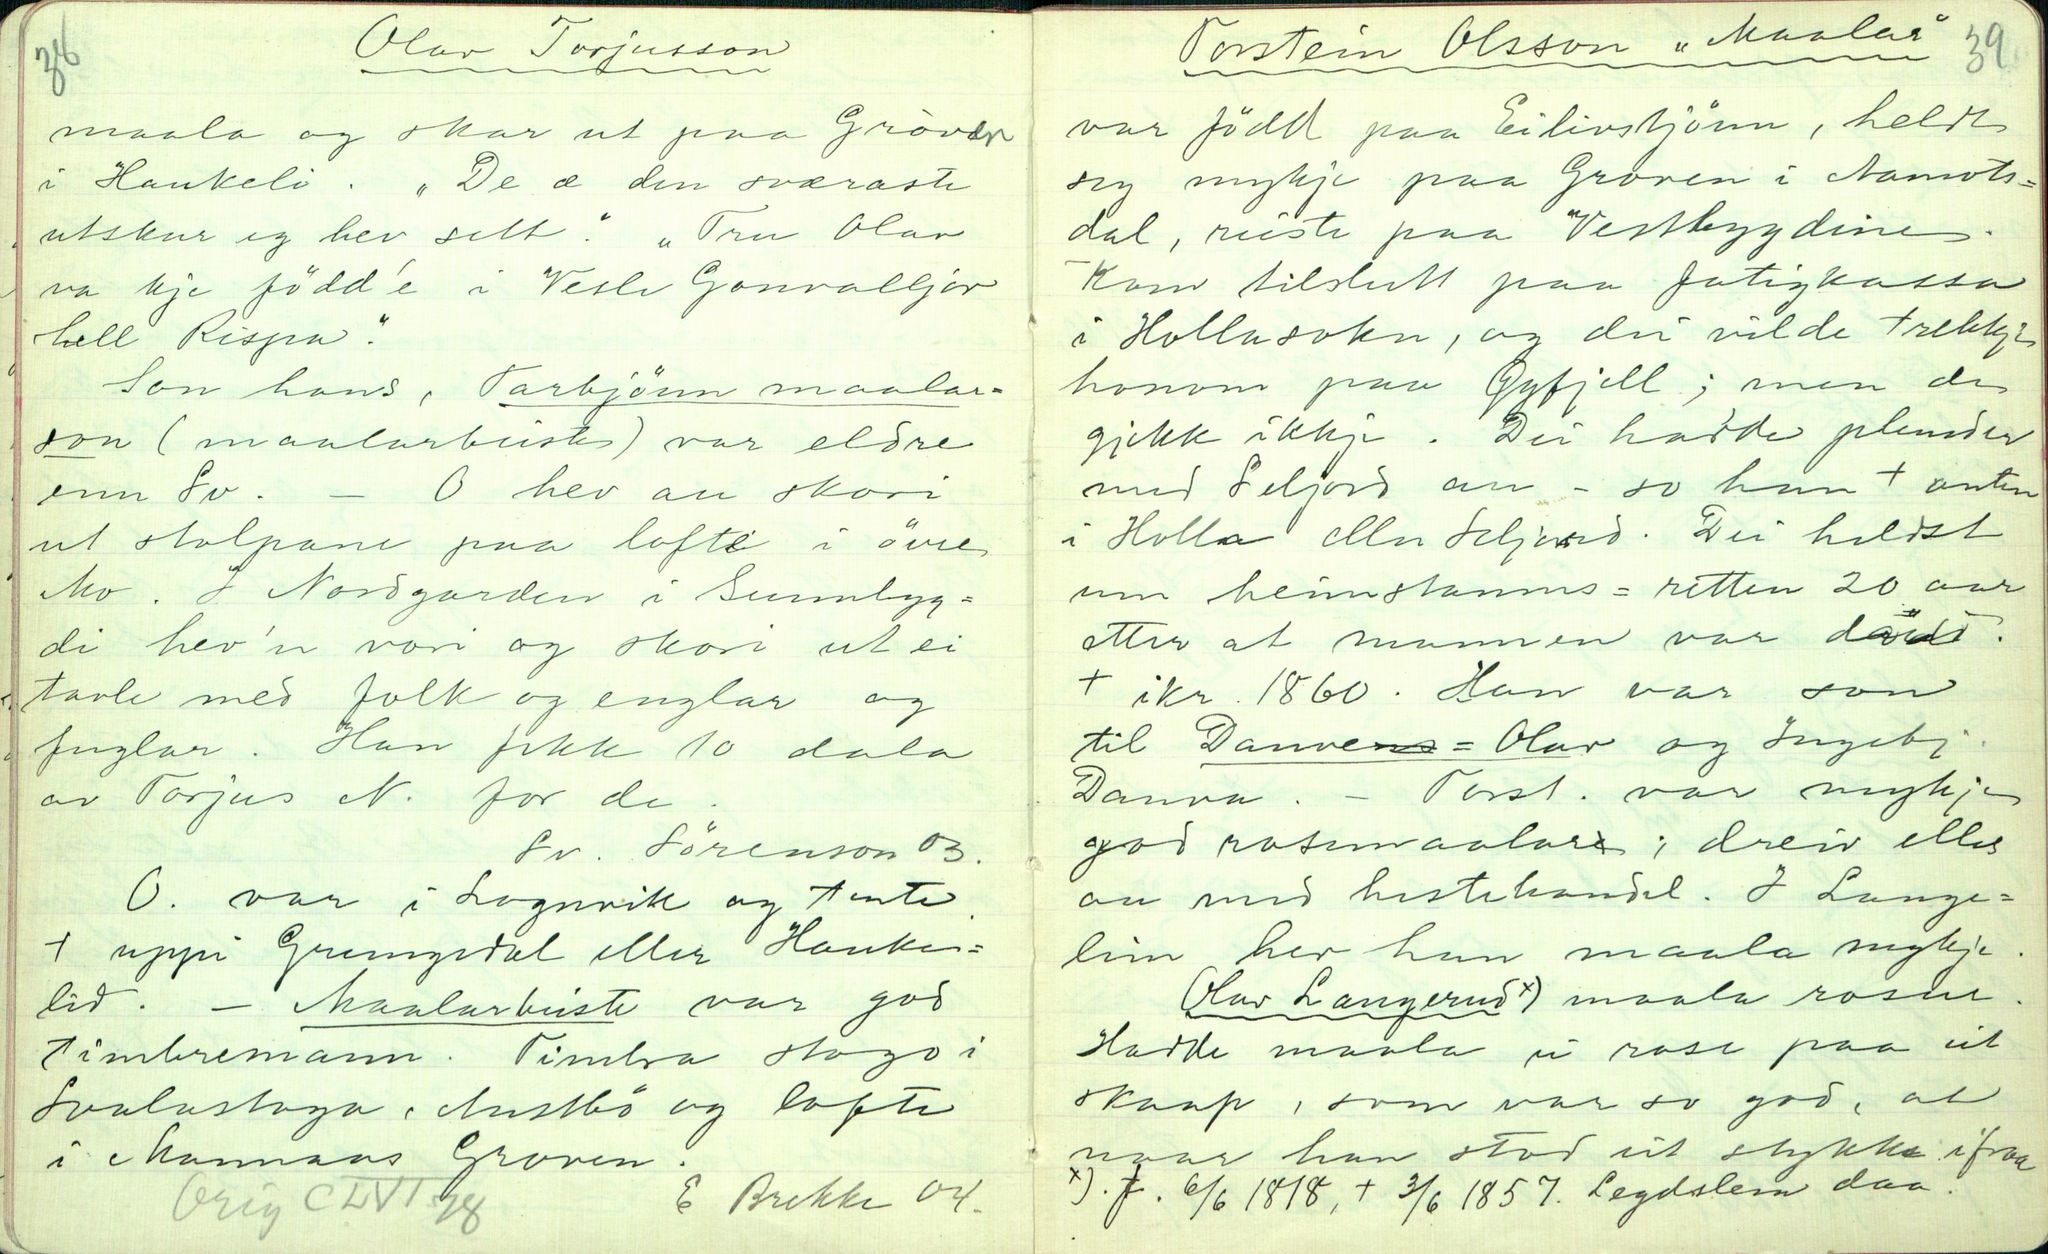 38
Olav Torjusson
maala og skar ut paa Gröven
i Haukeli. „De æ den sværaste
utskur eg hev sett." „Tru Olav
va kje födde' i Vesle Gonvalljor
hell Rispa".
Son hans, Tarbjönn maalar=
son (maalarbeiste) var eldre
enn Sv. – O hev au skori
ut stolpane paa lofte i övre
Mo. I Nordgarden i Sunnbyg=
di hev'n vori og skori ut ei
tavle med folk og englar og
fuglar. Han fekk 10 dala
av Torjus N. for de.
Sv. Sörenson 03.
O. var i Lognvik og tente.
+ uppi Grungedal eller Hauke=
lid. – Maalarbeiste var god
timbremann. Timbra stogo i
Svalastoga, Austbö og lofte
i Mannaas Groven.
E Brekke 04.
Orig CLVI 78
39
Torstein Olsson „Maalar"
var född paa Eilivstjönn, heldt
seg mykje paa Groven i Aamots=
dal, reiste paa Vestbygdine.
Kom tilslutt paa fatigkassa
i Hollasokn, og dei vilde trekkje
honom paa Gyfjell; men de
gjekk ikkje. Dei hadde plender
med Seljord au – so han + anten
i Holla eller Seljord. Dei heldst
um heimstamns=retten 20 aar
etter at mannen var död.
+ ikr. 1860. Han var son
til Danvens=Olav og Ingebj.
Danva. – Torst. var mykje
god rosemaalar; dreiv elles
au med hestehandel. I Lange=
lim hev han maala mykje.
Olav Langerud x) maala rosur.
Hadde maala ei rose paa eit
skaap, som var so god, at
naar han stod eit stykke ifraa
x). f. 6/6 1818, + 3/6 1857. Legdslem daa.